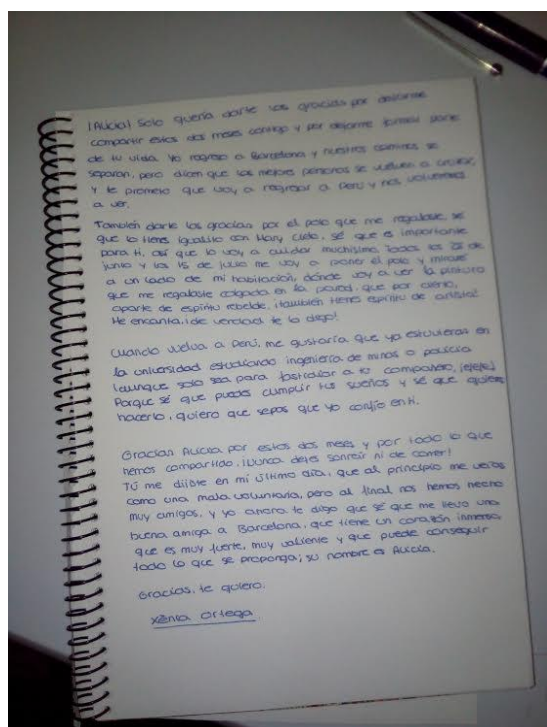 ¡Alicia! Solo quería darte las gracias por dejarme
compartir estos dos meses contigo y por dejarme formar parte
de tu vida. Yo regreso a Barcelona y nuestros caminos se
separan, pero dicen que las mejores personas se vuelven a cruzar,
y te prometo que voy a regresar a Perú y nos volveremos
a ver.
También darte las gracias por el polo que me regalaste, sé
que lo tienes igualito con Mary Cielo, sé que es importante
para ti, así que lo voy a cuidar muchísimo, todos los de
junio y los 15 de julio me voy a poner el polo y miraré
a un lado de mi habitación, dónde voy a ver la pintura
que me regalaste colgada en la pared, que por cierto,
aparte de espíritu rebelde, ¡también tienes espíritu de artista!
Me encanta, ¡de verdad te lo digo!
Cuando vuelva a Perú, me gustaría que ya estuvieras en
la universidad estudiando ingeniería de minas o policía
(aunque solo sea para fastidiar a tu compañero, jejeje)
Porque sé que puedes cumplir tus sueños y sé que quieres
hacerlo, quiero que sepas que yo confío en ti.
Gracias Alicia por estos dos meses y por todo lo que
hemos compartido. ¡Nunca dejes sonreír ni de comer!
Tú me dijiste en mi último día, que al principio me veías
como una mala voluntaria, pero al final nos hemos hecho
muy amigas, y yo ahora te digo que sé que me llevo una
buena amiga a Barcelona, que tiene un corazón inmenso,
que es muy fuerte, muy valiente y que puede conseguir
todo lo que se proponga; su nombre es Alicia.
Gracias, te quiero.
Xènia Ortega